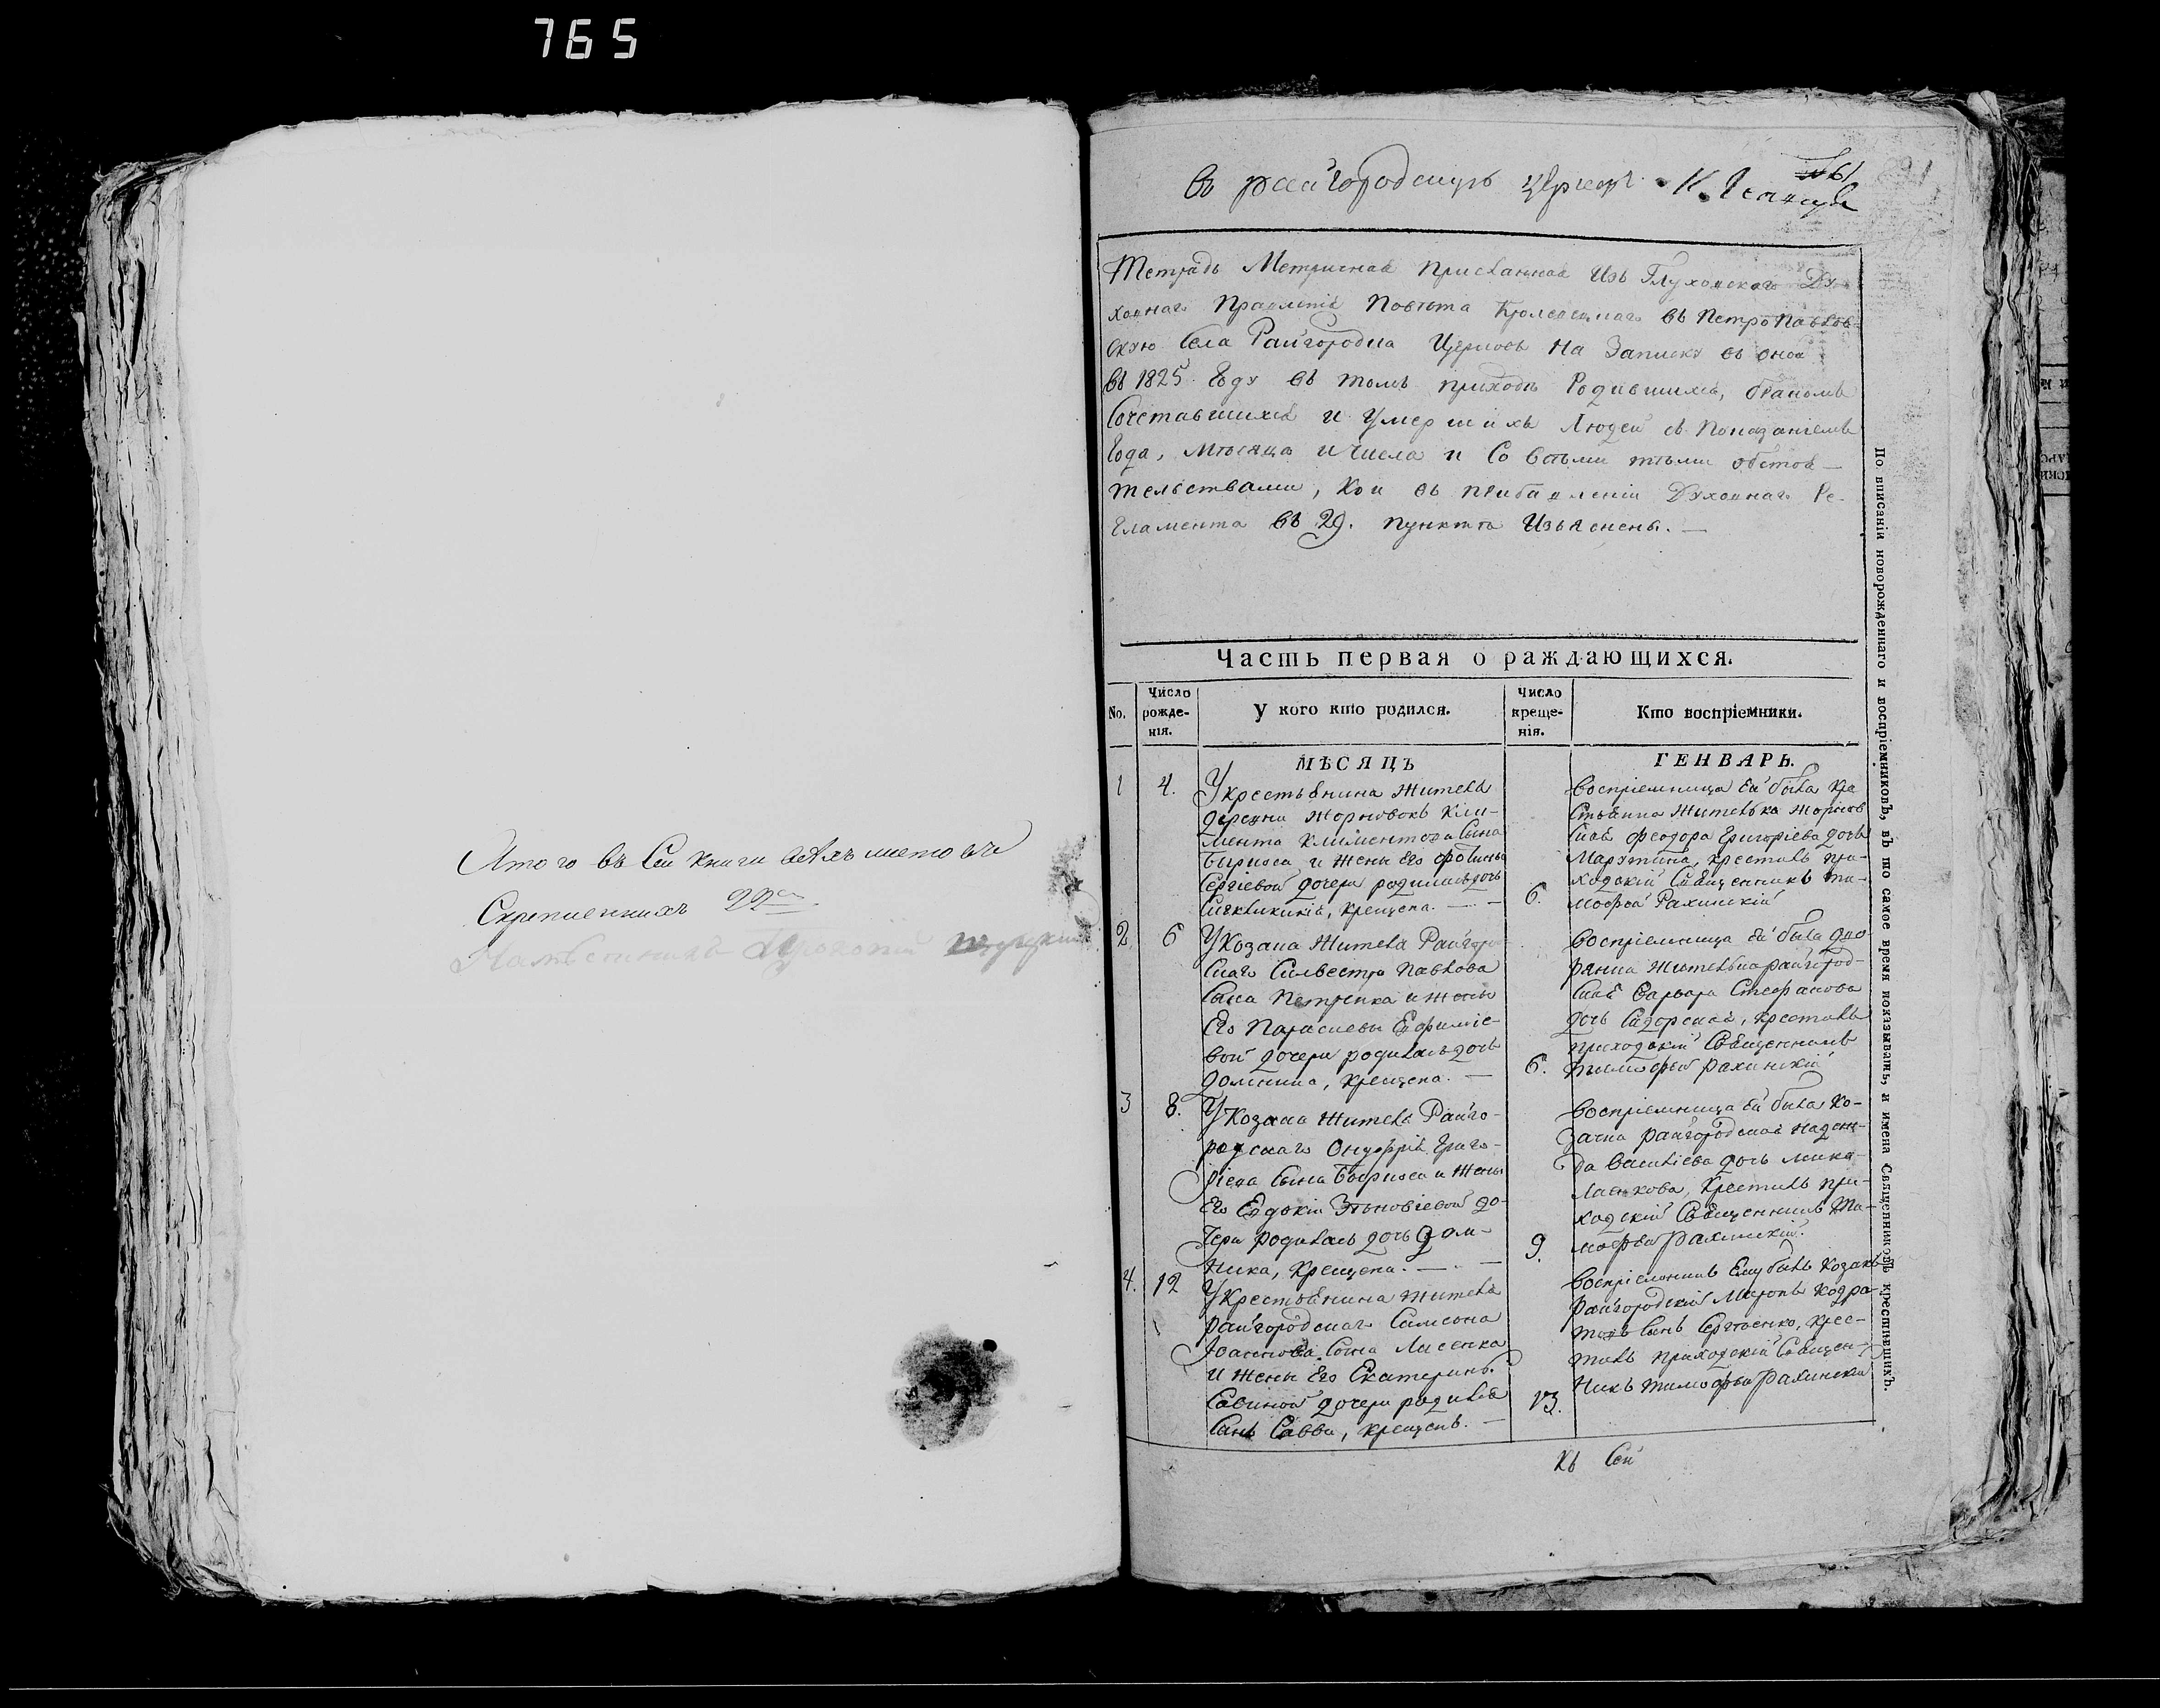 765
Итого въ сей книги всѣхъ листовъ
Скрепленнихъ 22
Прокопий
въ райгородскую
Тетрадь Метричная присланная Изъ Глуховского Ду-
ховнаго Правленія Повѣта Кролевецкаго въ ПетроПавлов-
скую Села Райгородка Церковь На Записку въ оной
въ 1825 Году въ томъ приходѣ Родившихся, бракомъ
Сочетавшихся и Умершихъ Людей съ Показаніемъ
Года, Мѣсяца и Числа и Со всѣми тѣми обстоя-
тельствами, Кои въ прибавленіи Духовнаго Ре-
гламента въ 29. пункта Изъяснены. —
Часть первая о раждающихся.
No.
Число рожде-нія.
У кого кто родился.
Число креще-нія.
Кто воспріемники.
МѢСЯЦЪ
ГЕНВАРЬ.
1 4. У крестьянина Жителя
деревни Жорновокъ Кли-
мента Климентова Сына
и жены Его Фотиньи
Сергіевой дочери родилась дочь
Сѵнкликикія, крещена. — —
6.
Воспріемница ей была кре
стьянка Жителька Жорнов
ская Феодора Григоріева дочь
крестилъ при-
ходскій Священникъ Ти-
мофей Рахинскій
2 6 У Козака Жителя Райгород
скаго Сильвестра Павлова
Сына Петренка и жены
Его Параскевы Евфиміе-
вой дочери родилась дочь
Домника, крещена. —
6.
Воспріемница ей была дво
рянка Жителька райгород-
ская Варвара Стефанова
дочь крестилъ
приходскій Священникъ
Тимофей рахинскій
3 8. У Козака Жителя Райго-
родскаго Онуфрія Григо-
ріева Сына и жены
Его Евдокіи Зѣновіевой до-
чери родилась дочь Дом-
ника, крещена. —
9.
Воспріемница ей была Ко-
зачка райгородская Надеж-
да Василіева дочь
крестилъ при-
ходскій Священникъ Ти-
мофей рахинскій.
4. 12 У Крестьянина Жителя
райгородскаго Симеона
Іоаннова Сына Лисенка
и жены Его Екатерины
Савиной дочери родился
Сынъ Савва, крещенъ. —
13.
Воспріемникъ Ему былъ Козакъ
райгородскій Миронъ Кодра
товъ Сынъ Сергѣенко, крес-
тилъ приходскій Священ-
никъ Тимофей рахинскій
Къ Сей
По вписаніи новорожденнаго и воспріемниковъ, въ то самое время показывать, и имена Священниковъ крестившихъ.